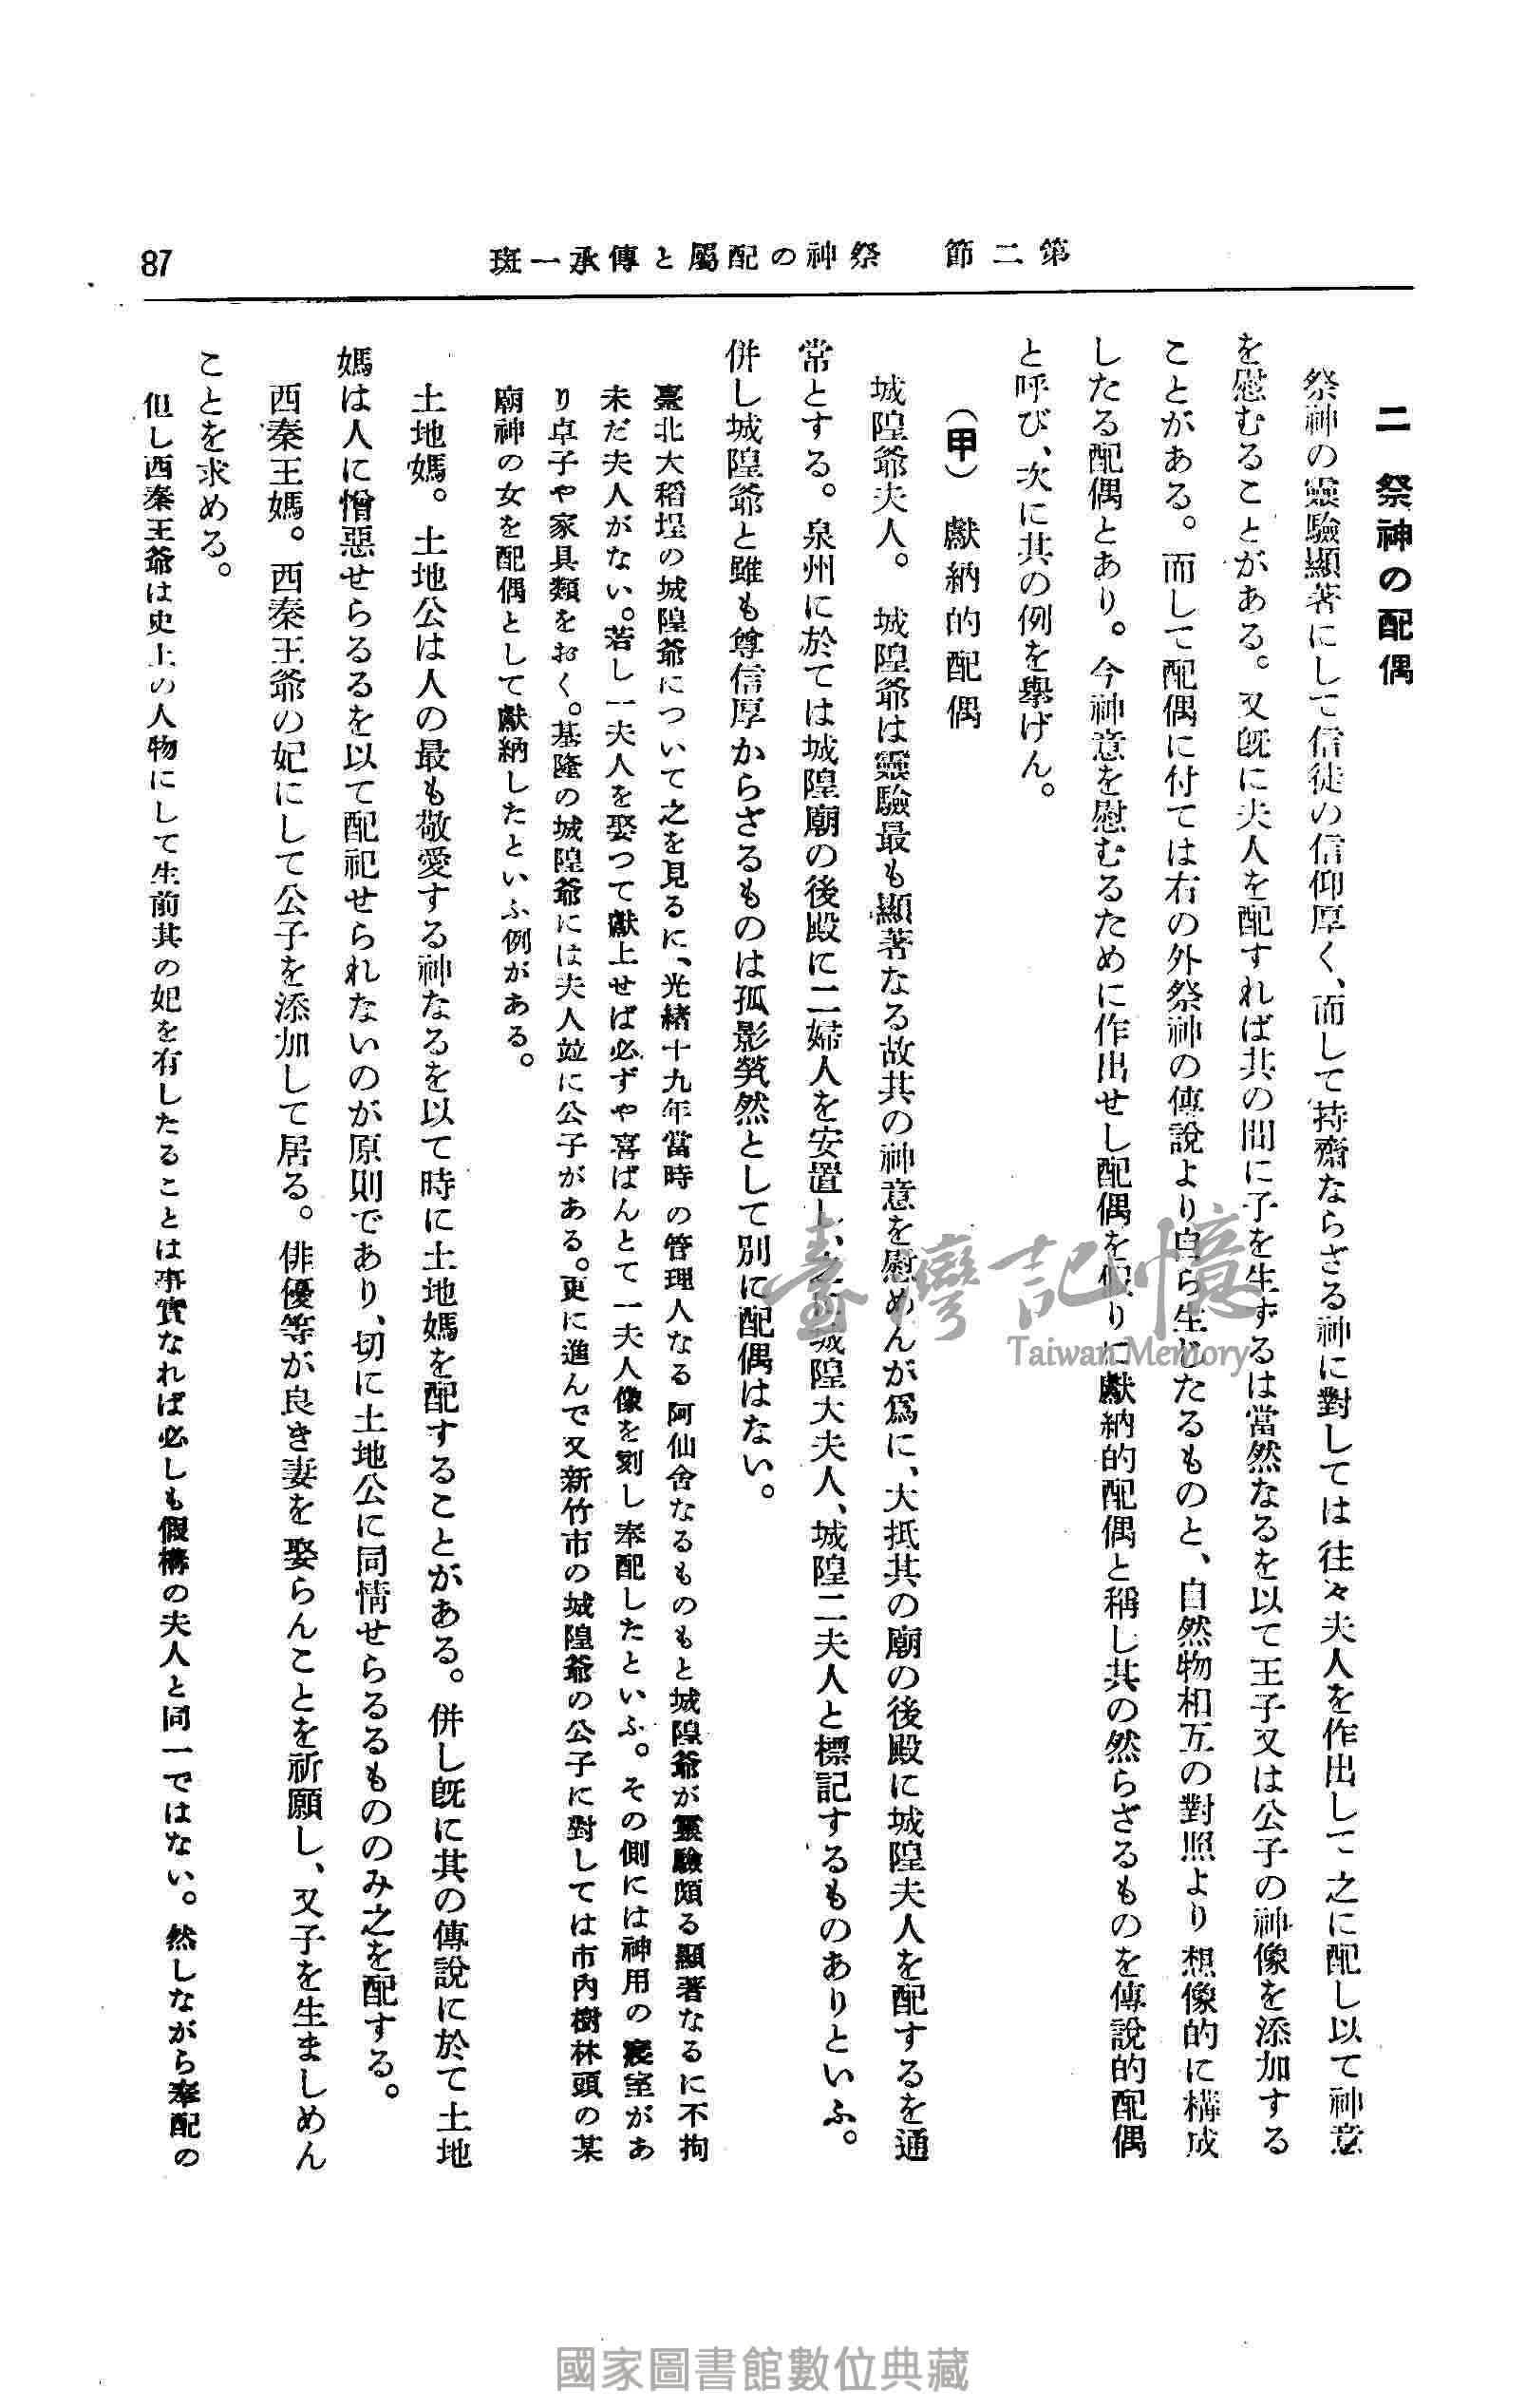 第二節　祭神の配屬と傳承一斑
87
二　祭神の配偶
祭神の靈驗顯著にして信徒の信仰厚く、而して持齋ならざる神に對しては往々夫人を作出して之に配し以て神意
を慰むることがある。又既に夫人を配すれば其の間に子を生ずるは當然なるを以て王子又は公子の神像を添加する
ことがある。而して配偶に付ては右の外祭神の傳說より自ら生じたるものと、自然物相互の對照より想像的に構成
したる配偶とあり。今神意を慰むるために作出せし配偶を假りに獻納的配偶と稱し其の然らざるものを傳說的配偶
と呼び、次に其の例を擧げん。
（甲）　獻納的配偶
城隍爺夫人。　城隍爺は靈驗最も顯著なる故其の神意を慰めんが爲に、大抵其の廟の後殿に城隍夫人を配するを通
常とする。泉州に於ては城隍廟の後殿に二婦人を安置し、之に城隍大夫人、城隍二夫人と標記するものありといふ。
併し城隍爺と雖も尊信厚からざるものは孤影煢然として別に配偶はない。
臺北大稻埕の城隍爺について之を見るに、光緒十九年當時の管理人なる阿仙舍なるものもと城隍爺が靈驗頗る顯著なるに不拘
未だ夫人がない。若し一夫人を娶つて獻上せば必ずや喜ばんとて一夫人像を刻し奉配したといふ。その側には神用の寢室があ
り卓子や家具類をおく。基隆の城隍爺には夫人並に公子がある。更に進んで又新竹市の城隍爺の公子に對しては市內樹林頭の某
廟神の女を配偶として獻納したといふ例がある。
土地媽。　土地公は人の最も敬愛する神なるを以て時に土地媽を配することがある。併し既に其の傳說に於て土地
媽は人に憎惡せらるるを以て配祀せられないのが原則であり、切に土地公に同情せらるるもののみ之を配する。
西秦王媽。　西秦王爺の妃にして公子を添加して居る。俳優等が良き妻を娶らんことを祈願し、又子を生ましめん
ことを求める。
但し西秦王爺は史上の人物にして生前其の妃を有したることは事實なれば必しも假構の夫人と同一ではない。然しながら奉配の
臺灣記憶
Taiwan Memory
國家圖書館數位典藏